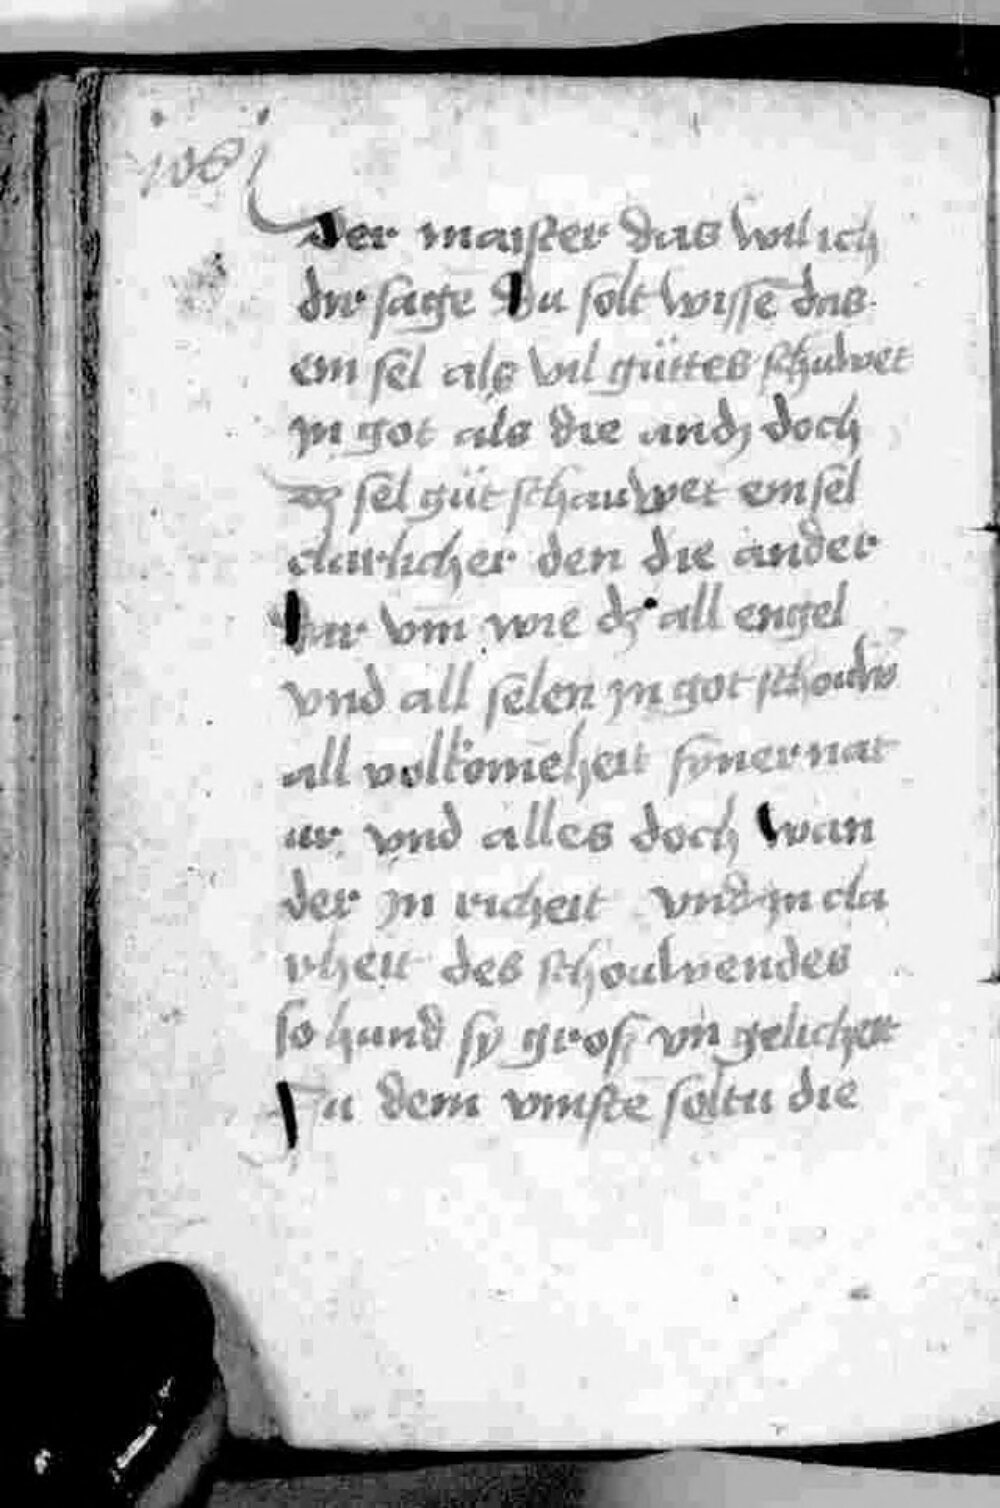 Der maister das wil ich
dir sage Du solt wissē das
ein sel als vil güttes schuwet
jn got als die andʒ doch
sel güt schauwet ein sel
clarlicher den die ander
Dar vm̄ wie dʒ all engel
vnd all selen jn got schouwē
all volkomēheit syner nat
ur vnd alles doch wan
der jn richeit vnd jn cla
rheit des schouwendes
so hand sy groß vngelicheit
Zu dem vinste soltu die